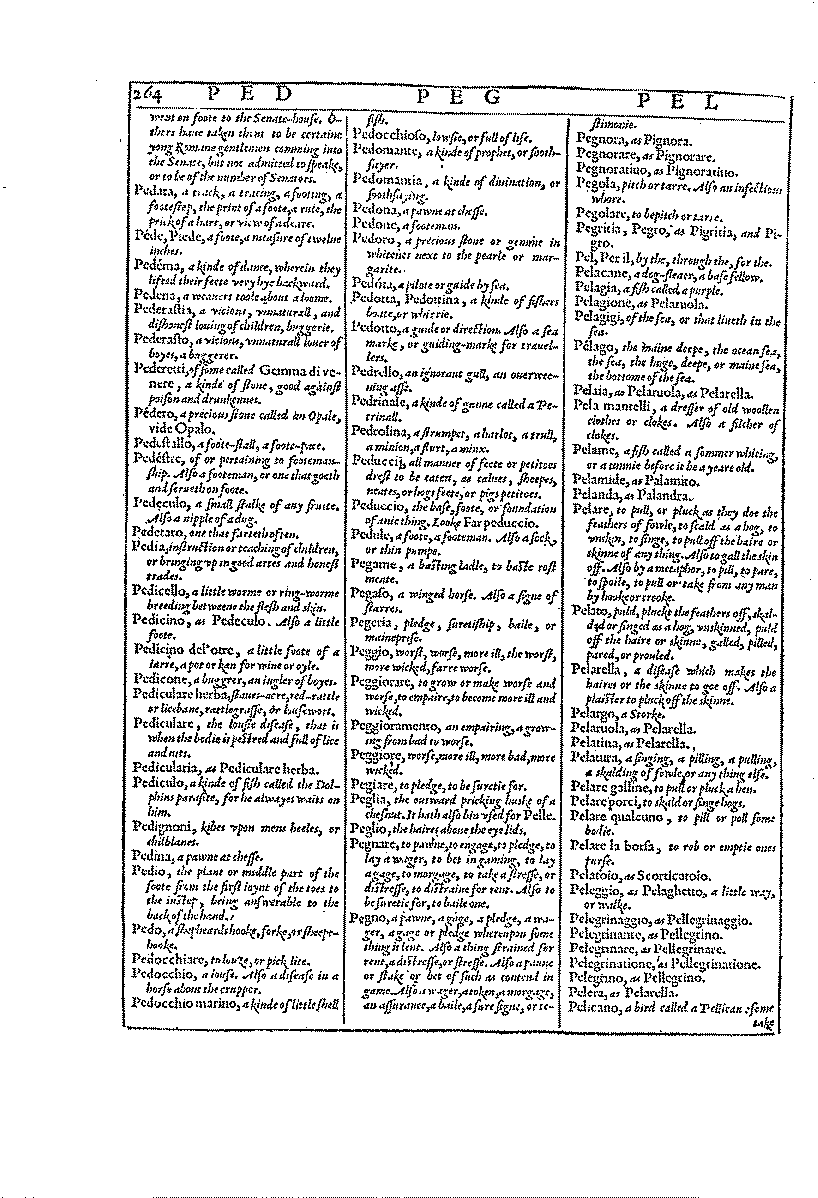 264 PED PEG PEL
went on foote to the Senate-house. O-
thers have taken them to be certaine
yong Romane gentlemen comming into
the Senate, but not admitted to speake,
or to be of the number of Senators.
Pedata, a track, a tracing, a footing, a
footestep, the print of a foote, a rute, the
prick of a hare, or view of a deare.
Péde, Piede, a foote, a measure of twelve
inches.
Pedéma, a kinde of dance, wherein they
lifted their feete very hye backward.
Pedena, a weavers toole about a loome.
Pederastia, a vicious, vnnaturall, and
dishonest louing of children, buggerie.
Pederasto, a vicious, vnnaturall louer of
boyes, a buggerer.
Pederetti, of some called Gemma di ve-
nere, a kinde of stone, good against
poison and drunkennes.
Pédero, a precious stone called an Opale,
vide Opalo.
Pedestallo, a foote-stall, a foote-pace.
Pedéstre, of or pertaining to footeman-
ship. Also a footeman, or one that goeth
and serueth on foote.
Pedeculo, a small stalke of any fruite.
Also a nipple of a dug.
Pedetaro, one that farteth often.
Pedia, instruction or teaching of children,
or bringing vp in good artes and honest
trades.
Pedicello, a little worme or ring-worme
breeding betweene the flesh and skin.
Pedicino, as Pedeculo. Also a little
foote.
Pedicino del'otre, a little foote of a
iarre, a pot or kan for wine or oyle.
Pedicone, a buggrer, an ingler of boyes.
Pediculare herba, staues-acre, red-rattle
or licebane, rattlegrasse, or lousewort.
Pediculare, the lousie disease, that is
when the bodie is pestred and full of lice
and nits.
Pedicularia, as Pediculare herba.
Pediculo, a kinde of fish called the Dol-
phins parasite, for he alwayes waits on
him.
Pedignoni, kibes vpon mens heeles, or
chilblanes.
Pedina, a pawne at chesse.
Pedio, the plant or middle part of the
foote from the first ioynt of the toes to
the instep, being answerable to the
back of the hand.
Pedo, a sheepheards hooke, forke, or sheepe-
hooke.
Pedocchiare, to louze, or pick lice.
Pedocchio, a louse. Also a disease in a
horse about the crupper.
Pedocchio marino, a kinde of little shell
fish.
Pedocchioso, lowsie, or full of life.
Pedomante, a kinde of prophet, or sooth-
sayer.
Pedomantia, a kinde of diuination, or
soothsaying.
Pedona, a pawne at chesse.
Pedone, a footeman.
Pedoro, a precious stone or gemme in
whitenes next to the pearle or mar-
garite.
Pedóta, a pilote or guide by sea.
Pedotta, Pedottina, a kinde of fishers
boate, or wherie.
Pedotto, a guide or direction. Also a sea
marke, or guiding-marke for travel-
lers.
Pedrello, an ignorant gull, an ouerwee-
ning asse.
Pedrinale, a kinde of gunne called a Pe-
trinall.
Pedrolina, a strumpet, a harlot, a trull,
a minion, a flurt, a minx.
Peducci, all manner of feete or petitoes
drest to be eaten, as calues, sheepes,
neates, or hogs feete, or pigs petitoes.
Peduccio, the base, foote, or foundation
of anie thing. Looke Far peduccio.
Pedule, a foote, a footeman. Also a sock,
or thin pumpe.
Pegame, a basting ladle, to baste rost
meate.
Pegaso, a winged horse. Also a signe of
starres.
Pegeria, pledge, suretiship, baile, or
maineprese.
Peggio, worst, worse, more ill, the worst,
more wicked, farre worse.
Peggiorare, to grow or make worse and
worse, to empaire, to become more ill and
wicked.
Peggioramento, an empairing, a grow-
ing from bad to worse.
Peggiore, worse, more ill, more bad, more
wicked.
Pegiare, to pledge, to be suretie for.
Peglia, the outward pricking huske of a
chesnut. It hath also bin vsed for Pelle.
Peglio, the haires aboue the eye lids.
Pegnare, to pawne, to engage, to pledge, to
lay a wager, to bet in gaming, to lay
a gage, to morgage, to take a stresse, or
distresse, to distraine for rent. Also to
be suretie for, to baile one.
Pegno, a pawne, a gage, a pledge, a wa-
ger, a gage or pledge whereupon some
thing is lent. Also a thing strained for
rent, a distresse, or stresse. Also a pawne
or stake or bet of such as contend in
game. Also a wager, a token, a morgage,
an assurance, a baile, a sure signe, or te-
stimonie.
Pegnora, as Pignora.
Pegnorare, as Pignorare.
Pegnoratiuo, as Pignoratiuo.
Pegola, pitch or tarre. Also an infectious
whore.
Pegolare, to bepitch or tarre.
Pegritia, Pegro, as Pigritia, and Pi-
gro.
Pel, Per il, by the, through the, for the.
Pelacane, a dog-fleaer, a base fellow.
Pelagia, a fish called a purple.
Pelagione, as Pelaruola.
Pelagigi, of the sea, or that liueth in the
sea.
Pélago, the maine deepe, the ocean sea,
the sea, the huge, deepe, or maine sea,
the bottome of the sea.
Pelaia, as Pelaruola, as Pelarella.
Pela mantelli, a dresser of old woollen
clothes or clokes. Also a filcher of
clokes.
Pelame, a fish called a sommer whiting,
or a tunnie before it be a yeare old.
Pelamide, as Palamito.
Pelanda, as Palandra.
Pelare, to pull, or pluck as they doe the
feathers of fowle, to scald as a hog, to
vnskin, to singe, to pull off the haire or
skinne of any thing. Also to gall the skin
off. Also by a metaphor, to pill, to pare,
to spoile, to pull or take from any man
by hooke or crooke.
Pelato, puld, pluckt the feathers off, skal-
ded or singed as a hog, vnskinned, puld
off the haire or skinne, galled, pilled,
pared, or prouled.
Pelarella, a disease which makes the
haires or the skinne to goe off. Also a
plaister to pluck off the skinne.
Pelargo, a Storke.
Pelaruola, as Pelarella.
Pelatina, as Pelarella.
Pelatura, a singing, a pilling, a pulling,
a skalding of fowle, or any thing else.
Pelare galline, to pull or pluck a hen.
Pelare porci, to skald or singe hogs.
Pelare qualcuno, to pill or poll some
bodie.
Pelare la borsa, to rob or emptie ones
purse.
Pelatoio, as Scorticatoio.
Peleggio, as Pelaghetto, a little way,
or walke.
Pelegrinaggio, as Pellegrinaggio.
Pelegrinante, as Pellegrino.
Pelegrinare, as Pellegrinare.
Pelegrinatione, as Pellegrinatione.
Pelegrino, as Pellegrino.
Pelera, as Pelarella.
Pelicano, a bird called a Pellican: some
take